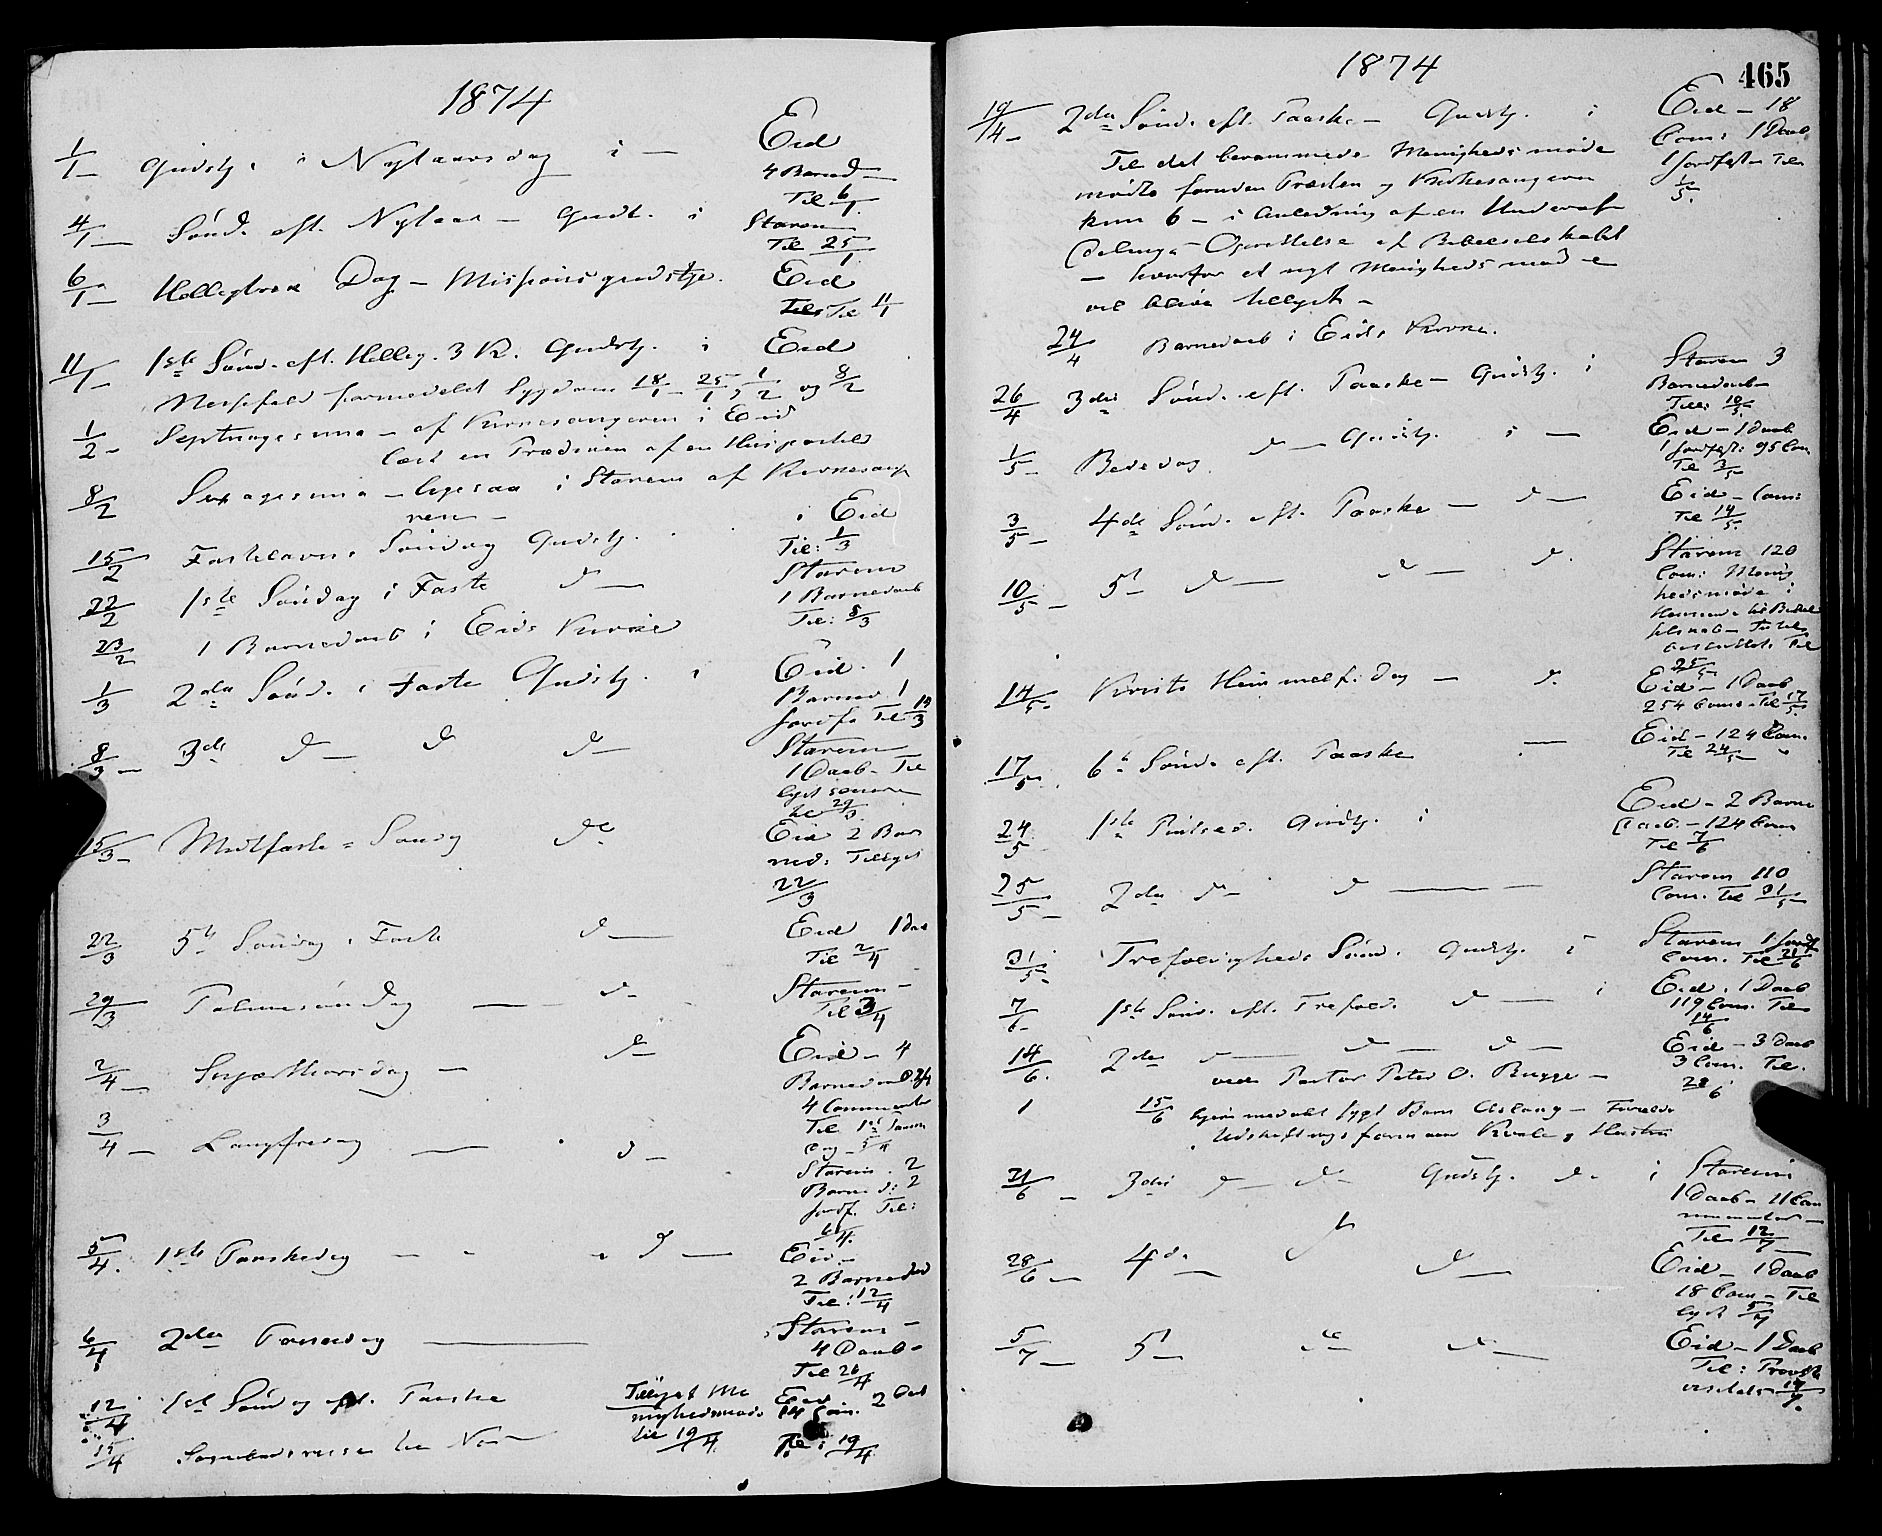 1874
1/1 Gudstj. i Nytaarsdag i — Eid
4 Barned
Til 6/1
4/1 — Sønd. eft. Nytaar — Gudt. i Støren
Til 25/1
6/1 — Helligtrek Dag — Missionsgudstje. Eid
Til 11/1
11/1 — 1ste Sønd. eft. Hellig. 3 K. Gudstj. i Eid
Messefald formedelst Sygdom 18/1 — 25/1, 1/2 og 8/2
1/2 — Septuagesima — af Kirkesangeren i Eid
læst en Prædiken af en Huspostil
8/2 Sexagesima — ligesaa i Støren af Kirkesange
ren —
15/2 Fastelavns Søndag Gudstj. i Eid
Til: 1/3
22/2 1ste Søndag i Faste d — Støren
1 Barnedaab
Til: 8/3
23/2 1 Barnedaab i Eids Kirke
1/3 2den Sønd. i Faste Gudstj. i Eid. 1
Barned. 1
Jordf. Til 15/3
8/3 — 3die d — d d — Støren
1 Daab — Til
lyst senere
til 29/3
15/3 — Midtfaste = Søndag do Eid 2 Bar
ned: Tillyst
22/3
22/3 5te Søndag i Faste d — Eid 1 Daab
Til 2/4
29/3 Palmesøndag — d — Støren —
Til 3/4
2/4 — Skjærthorsdag — d — Eid — 4
Barnedaab
4 Communikanter
Til 1ste Paaske
dag — 5/4
3/4 — Langfredag — d — Støren. 2
Barned: 2
Jordf. Til:
6/4.
5/4. 1ste Paaskedag — d — Eid —
2 Barnedaab
Til: 12/4
6/4 2den Paaskedag — Støren —
4 Daab —
Til 26/4
12/4 1ste Søndag eft. Paaske Tillyst Me Eid 2 Daab
nighedsmøde 14 Com.
til 19/4 Til: 19/4
15/4 Sognebudsreise til
1874
465
19/4 — 2den Sønd. eft. Paaske — Gudstj. i Eid — 18
Com: 1 Daab
1 Jordfæst — Til
1/5.
Til det berammede Menighedsmøde
mødte foruden Præsten og Kirkesangeren
kun 6 — i Anledning af en Underaf
delings Oprettelse af Bibelselskabet
— hvorfor et nyt Menighedsmøde
vil blive tillyst —
24/4 Barnedaab i Eids Kirke.
26/4 3die Sønd. eft. Paaske — Gudstj. i Støren 3
Barnedaab —
Till: 10/5.
1/5 — Bededag d — Gudstj. i — Eid — 1 Daab
1 Jordfæst: 95 Com
Til 3/5
3/5 — 4de Sønd. eft. Paaske — d — Eid — Com:
Til 14/5
10/5 — 5te d — d — d. Støren 120
Com: Menig
hedsmøde i
Til
25/5
14/5. Kristi Himmelf. dag — d. Eid — 1 Daab
254 Com. — Til 17/5.
17/5. 6te Sønd. eft. Paaske — Eid — 124 Com.
Til 24/5
24/5 1ste Pintsed. Gudstj. i Eid — 2 Barne
daab. — 124 Com
Til 7/6
25/5 — 2den d — d — Støren 110
Com. Til 31/5
31/5 Trefoldigheds Sønd. Gudstj. i Støren 1 Jordf
Com. Til 21/6
7/6 1ste Sønd. eft. Trefold. d — i Eid. 1 Daab
119 Com. Til
14/6
14/6. 2den d — d — d — Eid — 3 Daab
3 Com. Til.
28/6
ved Pastor Peter O. Bugge —
1 15/6 hjemmedøbt sygt Barn Aslaug — Forældre
Udskiftningsformand Kvale og Hustru
21/6 — 3die d — d — Gudstj. d — i Støren
1 Daab — 11 Com
munikanter —
Til 12/7
28/6 — 4de d d — Eid — 1 Daab
18 Com — Til
lyst 5/7
5/7 — 5te d — d — Eid — 1 Daab
Til: Provste
visitats 14/7.